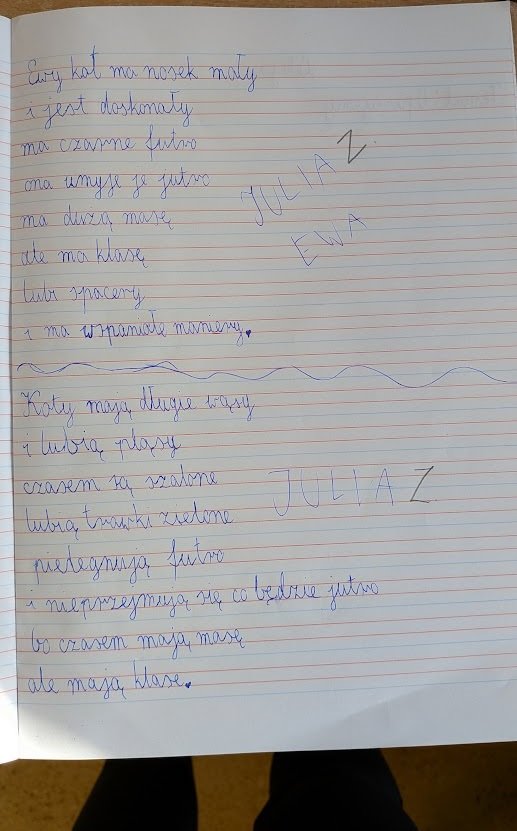 Ewy kot ma nosek mały
i jest doskonały
ma czarne futro
ona umyje je jutro
JULIA Z.
ma dużą masę
EWA
ale ma klasę
lubi spacery
i ma wspaniałe maniery.
Koty mają długie wąsy
i lubią pląsy
czasem są szalone
JULIA Z.
lubią trawki zielone
pielęgnują futro
i nieprzejmują się co będzie jutro
bo czasem mają masę
ale mają klasę.